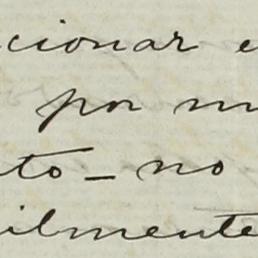 cionar e
por m
to - no
ilmente